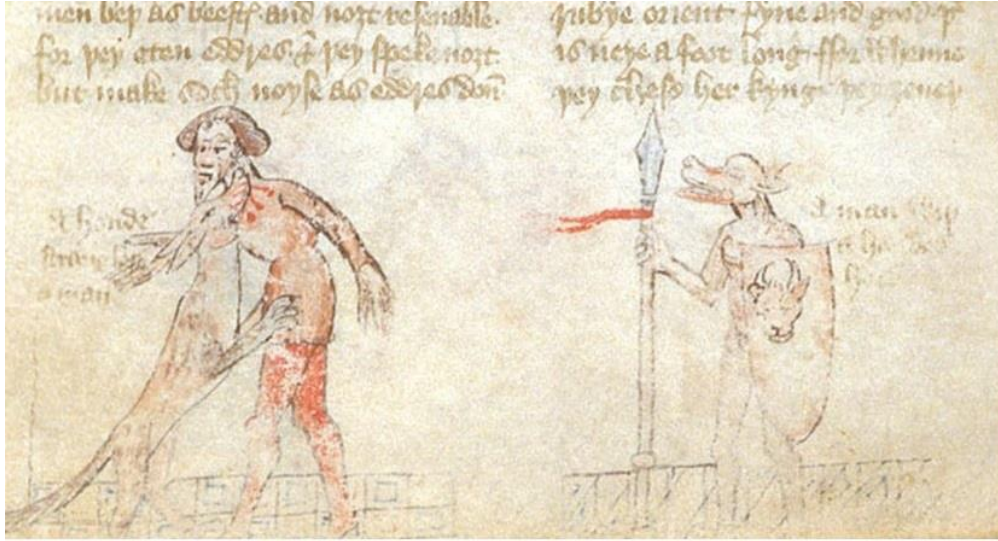 men beþ as beestes and noȝt resenable.
for þey eten eddres & þey speke noȝt
but make soch noyse as eddres don
rubye orient fyne and good þt
is neye a foot long ffor whenne
þey chese her kyng þey
A honde
a man
A man wiþ